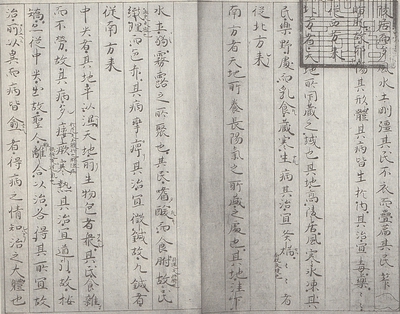 陵居而多風水土剛強其民不衣而褐薦其民華
故邪不能傷其形體其病皆生於內其治宜毒藥〻〻者
從西方來
北方者天地所閉藏之域也其地高陵居風寒冰凍其
民樂野處而乳食藏寒生病其治宜灸焫〻〻者
從北方來
南方者天地所養長陽氣之所盛之處也其地洼下
水土弱霧露之所聚也其民嗜酸而食胕故民
緻理而色赤其病攣痺其治宜微鍼故九鍼者
從南方來
中央者其地平以濕天地所生物色者衆其民食雜
而不勞故其病多痿厥寒熱其治宜道引故按
蹻亦從中央出故聖人離合以治各得其所宜故
治所以異而病皆愈者得病之情知治之大體也